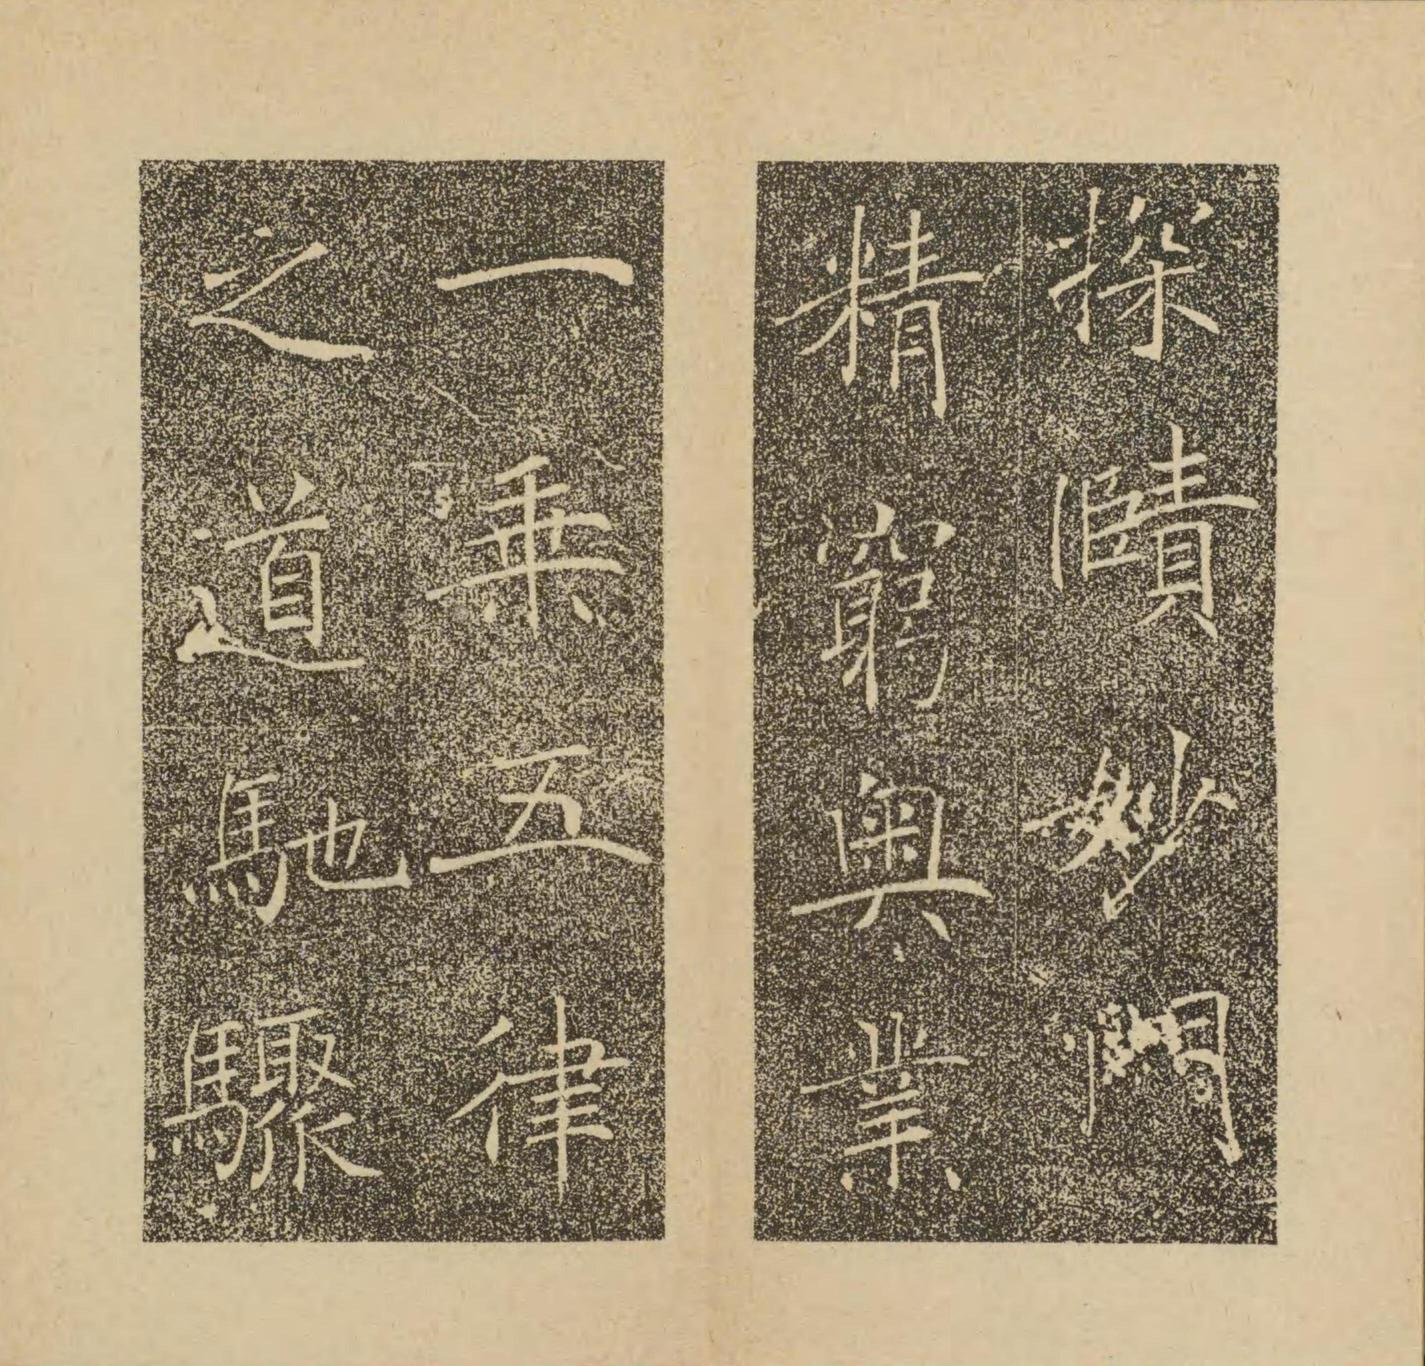 探賾妙門
精窮奧業
一乘五律
之道馳驟